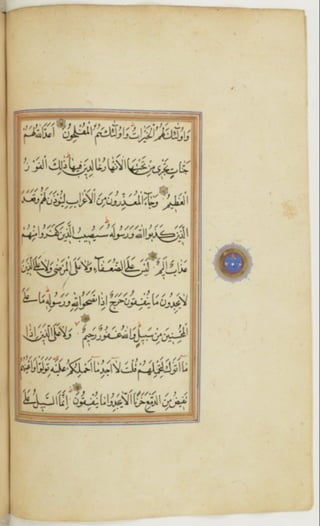 وَاُولٰئِكَ لَهُمُ الْخَيْرَاتُ وَاُولٰئِكَ هُمُ الْمُفْلِحُونَ اَعَدَّ اللّٰهُ لَهُمْ
جَنَّاتٍ تَجْرِى مِنْ تَحْتِهَا الْاَنْهَارُ خَالِدِينَ فِيهَا ذٰلِكَ الْفَوْزُ
الْعَظِيمُ وَجَاءَ الْمُعَذِّرُونَ مِنَ الْاَعْرَابِ لِيُؤْذَنَ لَهُمْ وَقَعَدَ
الَّذِينَ كَذَبُوا اللّٰهَ وَرَسُولَهُ سَيُصِيبُ الَّذِينَ كَفَرُوا مِنْهُمْ
عَذَابٌ اَلِيمٌ لَيْسَ عَلَى الضُّعَفَاءِ وَلَا عَلَى الْمَرْضٰى وَلَا عَلَى الَّذِينَ
لَا يَجِدُونَ مَا يُنْفِقُونَ حَرَجٌ اِذَا نَصَحُوا لِلّٰهِ وَرَسُولِهِ مَا عَلَى
الْمُحْسِنِينَ مِنْ سَبِيلٍ وَاللّٰهُ غَفُورٌ رَحِيمٌ وَلَا عَلَى الَّذِينَ اِذَا
مَا اَتَوْكَ لِتَحْمِلَهُمْ قُلْتَ لَا اَجِدُ مَا اَحْمِلُكُمْ عَلَيْهِ تَوَلَّوْا وَاَعْيُنُهُمْ
تَفِيضُ مِنَ الدَّمْعِ حَزَنًا اَلَّا يَجِدُوا مَا يُنْفِقُونَ اِنَّمَا السَّبِيلُ عَلَى